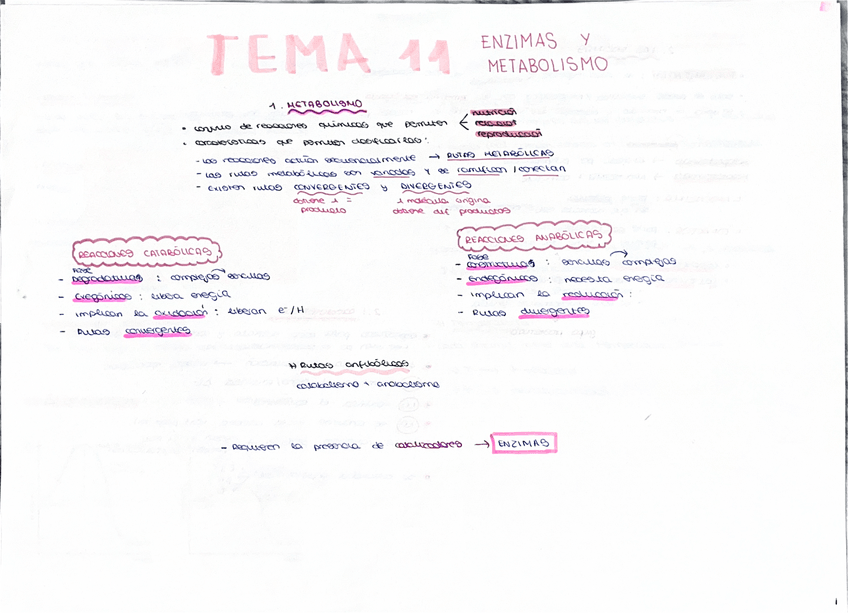 TEMA 11 ENZIMAS Y
METABOLISMO
1. METABOLISMO
• conjunto de reacciones químicas que permiten < nutrición
relación
reproducción
• características que permiten clasificarlas:
- Las reacciones actúan secuencialmente → RUTAS METABÓLICAS
- Las rutas metabólicas son variadas y se ramifican / conectan
- Existen rutas CONVERGENTES y DIVERGENTES
obtiene 1 =
producto
1 molécula origina
obtiene dif productos
REACCIONES CATABÓLICAS
Fase
- Degradativas : complejas → sencillas
- Exergónicas : libera energía
- Implican la oxidación : liberan e⁻/H
- Rutas convergentes
REACCIONES ANABÓLICAS
Fase
- constructivas : sencillas → complejas
- Endergónicas : necesita energía
- Implican la reducción :
- Rutas divergentes
# Rutas anfibólicas
catabolismo + anabolismo
- Requieren la presencia de catalizadores → ENZIMAS